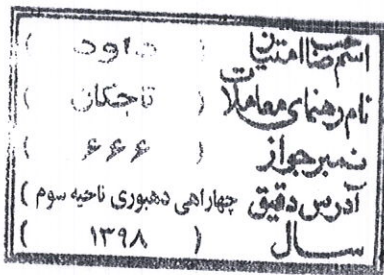 اسم صاحب امتیاز ( داود )
نام رهنمای معاملات ( تاجکان )
نمبر جواز ( ۶۶۶ )
آدرس دقیق چهاراهی دهبوری ناحیه سوم )
ســـال ( ۱۳۹۸ )